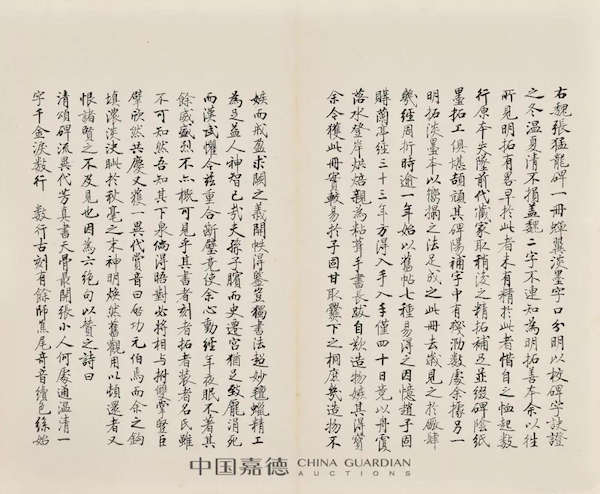 右魏張猛龍碑一冊蟬翼淡墨字口分明以校碑字訣證
之冬溫夏清不損蓋魏二字不連知為明拓善本余以往
所見明拓有畧早於此者未有精於此者惜自之恤起數
行原本失墜前代藏家取稍後之精拓補足並綴碑陰紙
墨拓工俱堪頡頏其碑陽補字中有殘泐數處余據另一
明拓淡墨本以嚮搨之法足成之此冊去歲見之於廠肆
幾經周折時逾一年始以舊帖七種易得之因憶趙子固
購蘭亭經三十三年方得入手入手僅四十日竟以舟覆
落水登岸烘焙親為粘葺手書長跋自歎造物嫉其得寶
余今獲此冊實較易於子固甘取爨下之桐庶幾造物不
嫉而戒盈求闕之義開帙得鑒豈獨書法超妙氈蠟精工
為足益人神智已哉夫孫子臏而史遷宮猶足致龐涓死
而漢武懼今茲重合斷璧竟使余心動經年夜眠不著其
餘威盛烈不亦概可見乎其書者刻者拓者裝者名氏雖
不可知然吾知其下泉倘得晤對必將相与拊掌豎巨
擘欣然共慶又獲一異代賞音曰啟功元伯焉而余之鈎
填濃淡決眦於秋毫之末神明煥然舊觀用以頓還者又
恨諸賢之不及見也因為六絕句以贊之詩曰
清頌碑流異代芳真書天骨最開張小人何處通溫清一
字千金淚數行 數行古刻有餘師焦尾奇音續色絲始
中国嘉德 CHINA GUARDIAN
AUCTIONS